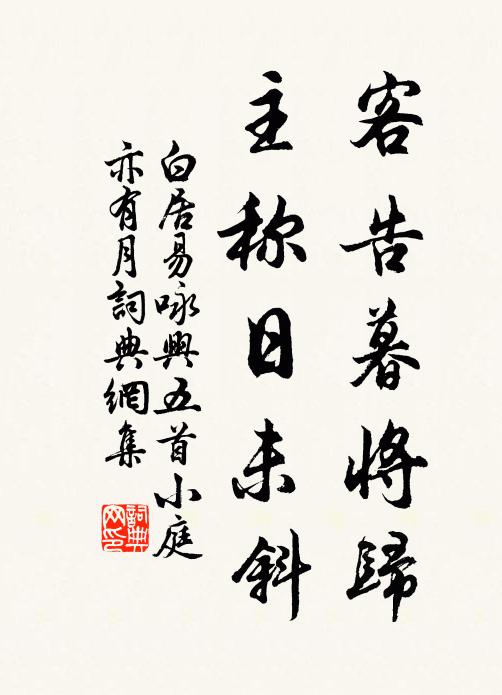 客告暮将歸
主称日未斜
白居易咏興五首小庭
亦有月詞典網集
詞典
网印